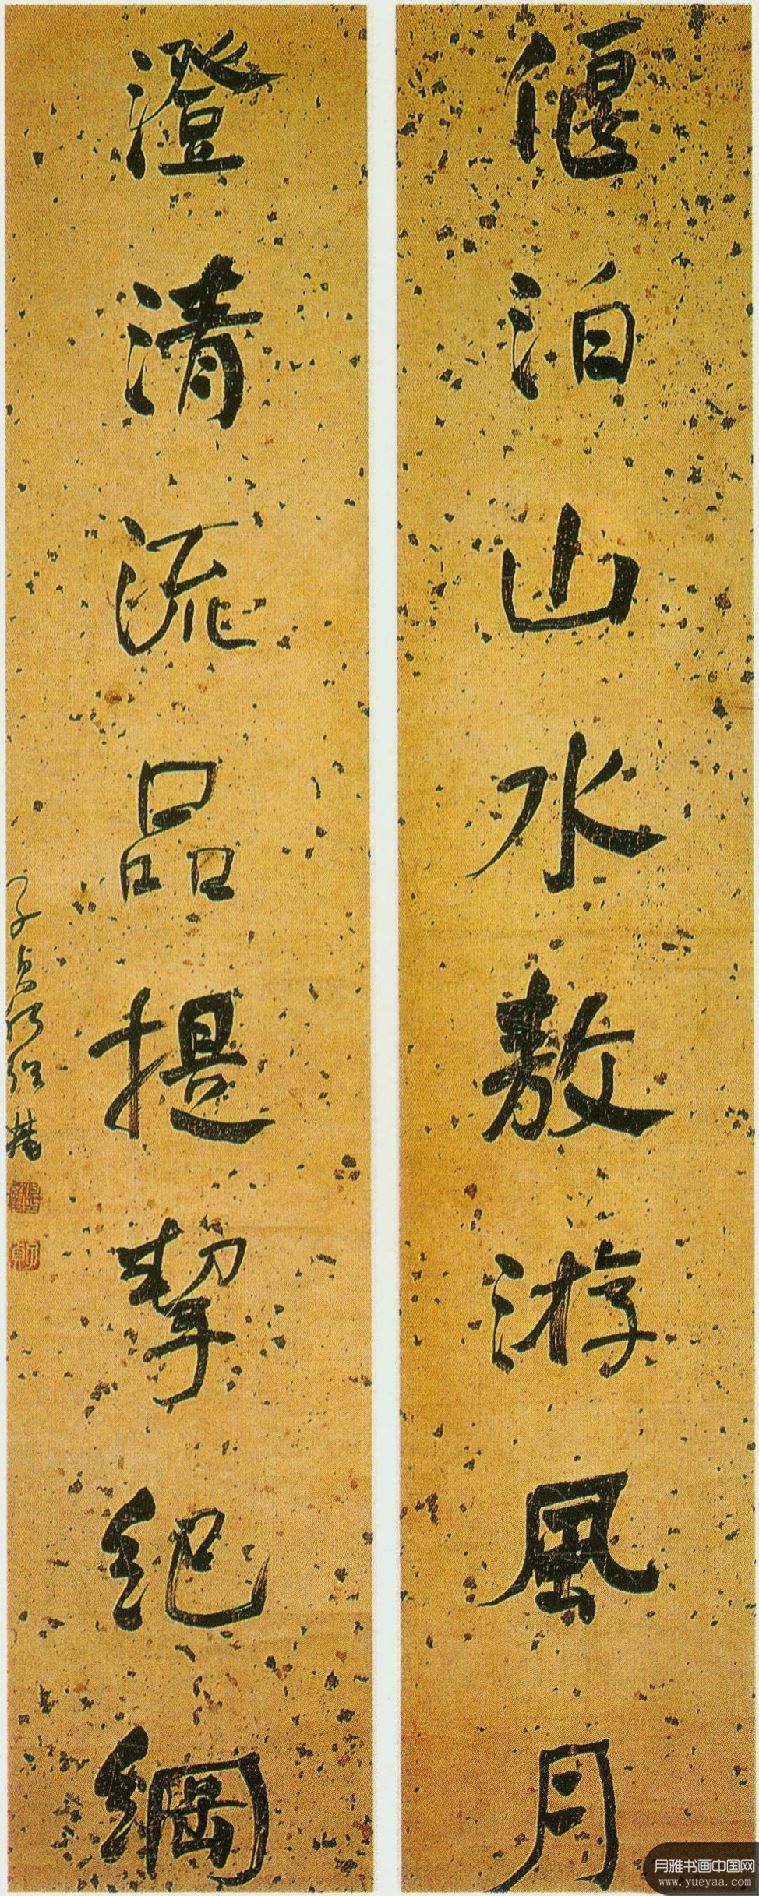 偃泊山水敖游风月
澄清流品提挈纪纲
子贞何绍基
月雅书画中国网
www.yueyaa.com